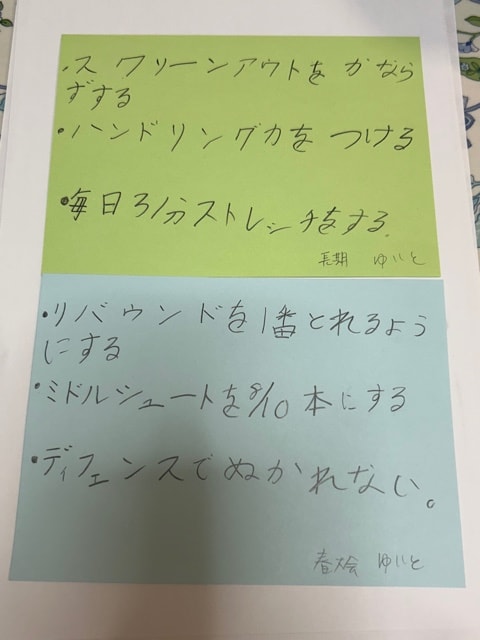 ・スクリーンアウトをかなら
ずする
・ハンドリング力をつける
・毎日31分ストレッチをする.
長期 ゆいと
・リバウンドを1番とれるよう
にする
・ミドルシュートを8/10本にする
・ディフェンスでぬかれない。
春大会 ゆいと